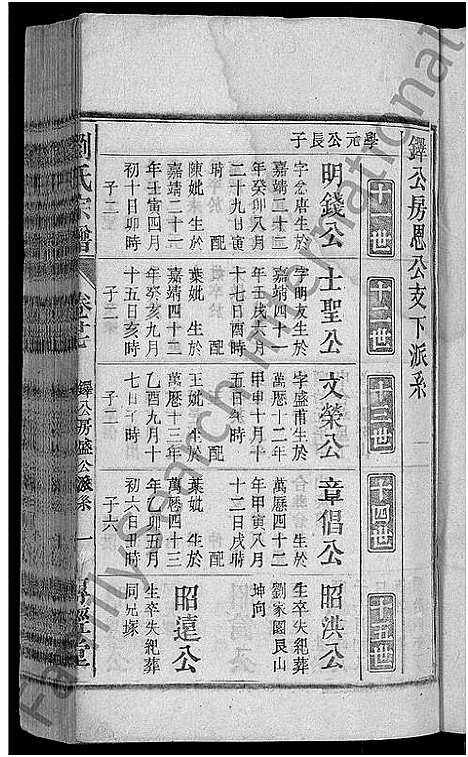 鐸公房恩公支下派系
十一世
十二世
十三世
十四世
十五世
學元公長子
明錢公
字念唐生於
嘉靖二十二
年癸卯八月
二十九日寅
時　配
陳妣　生於
嘉靖二十一
年壬寅四月
初十日卯時
子二
士聖公
字明友生於
嘉靖四十一
年壬戌六月
十七日酉時
配
葉妣　生於
嘉靖四十二
年癸亥九月
十五日亥時
子二
文榮公
字盛甫生於
萬曆十二年
甲申十月十
五日　時
配
王妣　生於
萬曆十三年
乙酉九月十
七日　時
子二
章倡公
生於
萬曆四十二
年甲寅八月
十二日戌時
配
葉妣　生於
萬曆四十三
年乙卯五月
初六日丑時
子六
昭洪公
生卒失紀葬
劉家園艮山
坤向
昭遠公
生卒失紀葬
同兄塚
劉氏宗譜
卷廿七
鐸公房盛公派系
一
FamilySearch International